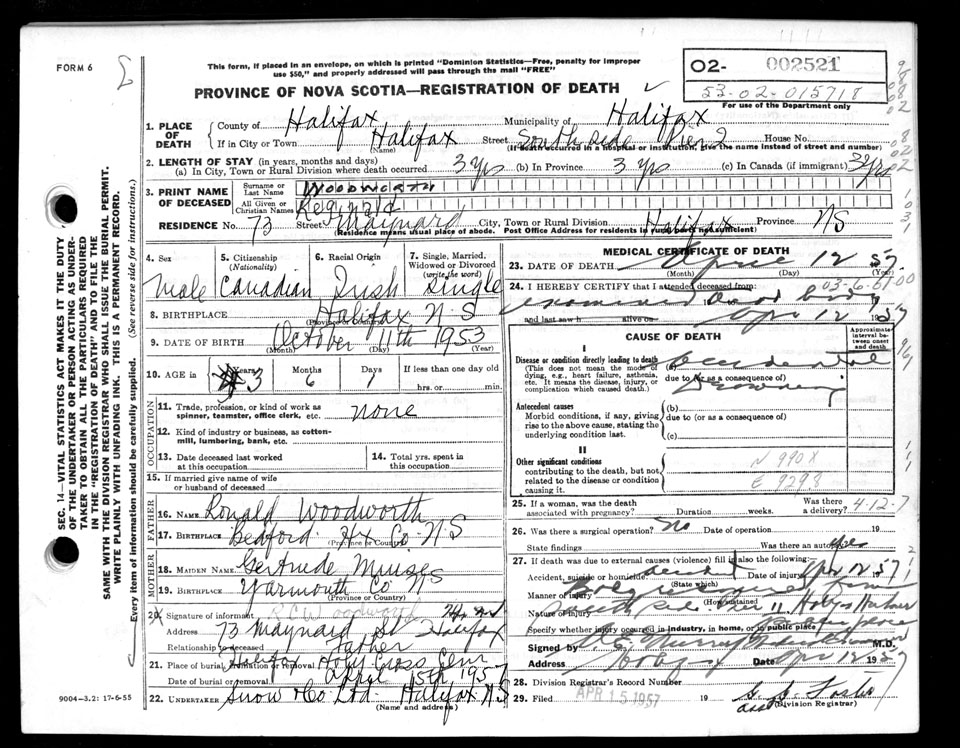 FORM 6
This form, if placed in an envelope, on which is printed "Dominion Statistics—Free, penalty for improper
use $50," and properly addressed will pass through the mail "FREE"
PROVINCE OF NOVA SCOTIA—REGISTRATION OF DEATH
O2- 002521
53-02-015718
For use of the Department only
1. PLACE OF DEATH
County of Halifax Municipality of Halifax
If in City or Town Halifax Street South side Pier 2 House No.
(Name) (If death occurred in a hospital or institution, give the name instead of street and number)
2. LENGTH OF STAY (in years, months and days)
(a) In City, Town or Rural Division where death occurred 3 yrs (b) In Province 3 yrs (c) In Canada (if immigrant) 3 yrs
3. PRINT NAME OF DECEASED
Surname or Last Name WOODWORTH
All Given or Christian Names Reginald
RESIDENCE No. 73 Street Maynard City, Town or Rural Division Halifax Province NS
(Residence means usual place of abode. Post Office Address for residents in rural parts not sufficient)
4. Sex male
5. Citizenship (Nationality) Canadian
6. Racial Origin Irish
7. Single, Married, Widowed or Divorced (write the word) Single
8. BIRTHPLACE Halifax N S
(Province or Country)
9. DATE OF BIRTH October 11th 1953
(Month) (Day) (Year)
10. AGE in Years 3 Months 6 Days 1 If less than one day old
hrs. or min.
OCCUPATION
11. Trade, profession, or kind of work as spinner, teamster, office clerk, etc. none
12. Kind of industry or business, as cotton-mill, lumbering, bank, etc.
13. Date deceased last worked at this occupation
14. Total yrs. spent in this occupation
15. If married give name of wife or husband of deceased
FATHER
16. NAME Ronald Woodworth
17. BIRTHPLACE Bedford Hx Co N S
(Province or Country)
MOTHER
18. MAIDEN NAME Gertrude Muise
19. BIRTHPLACE Yarmouth Co NS
(Province or Country)
20. Signature of informant R C Woodworth
Address 73 Maynard St Halifax
Relationship to deceased Father
21. Place of burial, cremation or removal Halifax Holy Cross Cem
Date of burial or removal April 15th 1957
22. UNDERTAKER Snow & Co Ltd - Halifax N.S
(Name and address)
9004-3.2: 17-6-55
SEC. 14—VITAL STATISTICS ACT MAKES IT THE DUTY OF THE UNDERTAKER OR PERSON ACTING AS UNDERTAKER TO OBTAIN ALL THE PARTICULARS REQUIRED IN THE "REGISTRATION OF DEATH" AND TO FILE THE SAME WITH THE DIVISION REGISTRAR WHO SHALL ISSUE THE BURIAL PERMIT.
WRITE PLAINLY WITH UNFADING INK. THIS IS A PERMANENT RECORD.
Every item of information should be carefully supplied. (See reverse side for instructions.)
MEDICAL CERTIFICATE OF DEATH
23. DATE OF DEATH April 12 1957
(Month) (Day) (Year)
24. I HEREBY CERTIFY that I attended deceased from:
03-6-51-00
examined dead body
and last saw h alive on Apr 12 1957
CAUSE OF DEATH
Approximate interval between onset and death
I
Disease or condition directly leading to death
(This does not mean the mode of dying, e.g., heart failure, asthenia, etc. It means the disease, injury, or complication which caused death.)
(a) accidental
due to (or as a consequence of) drowning
Antecedent causes
Morbid conditions, if any, giving rise to the above cause, stating the underlying condition last.
(b)
due to (or as a consequence of)
(c)
II
Other significant conditions contributing to the death, but not related to the disease or condition causing it.
N 990X
E 9298
25. If a woman, was the death associated with pregnancy? Duration weeks. Was there a delivery? 4-12-7
26. Was there a surgical operation? No Date of operation 19
State findings Was there an autopsy? yes
27. If death was due to external causes (violence) fill in also the following:
Accident, suicide or homicide accident Date of injury Apr 12 1957
(State which)
Manner of injury
(How sustained)
Nature of injury
Specify whether injury occurred in industry, in home, or in public place
Signed by M.D.
Address Halifax Date Apr 12 1957
28. Division Registrar's Record Number
29. Filed APR 15 1957 19
(Division Registrar)